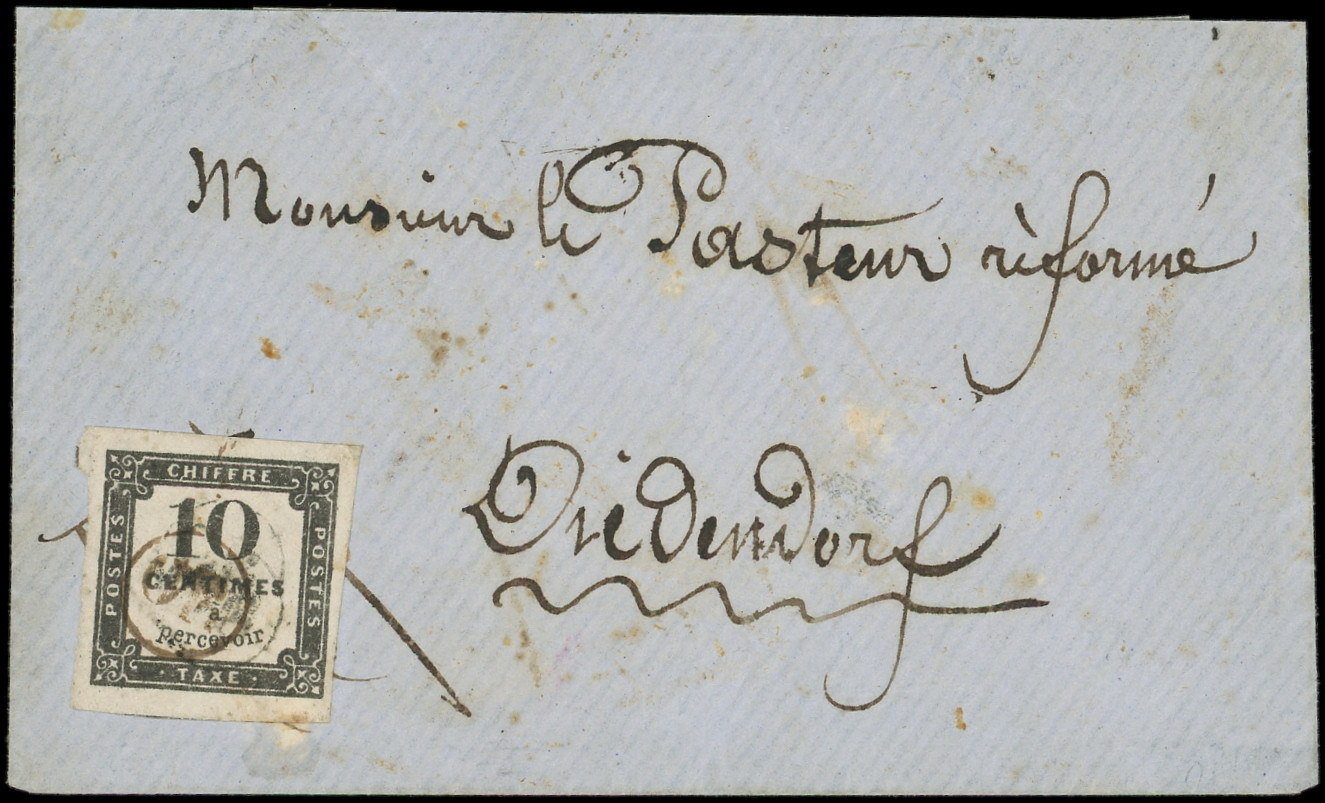 Monsieur le Pasteur rèformé
Diedendorf
CHIFFRE
POSTES
10
CENTIMES
à
percevoir
POSTES
· TAXE ·